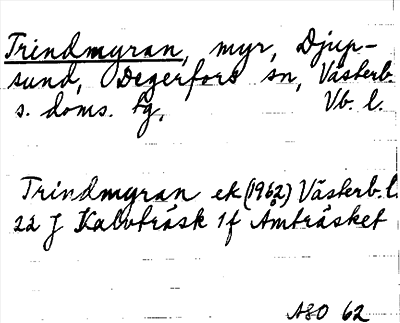 Trindmyran, myr, Djup-
sund, Degerfors sn, Västerb.
s. doms. fg, Vb. l.
Trindmyran ek (1962) Västerb. l.
22 J Kalvträsk 1f Åmträsket
ASO 62